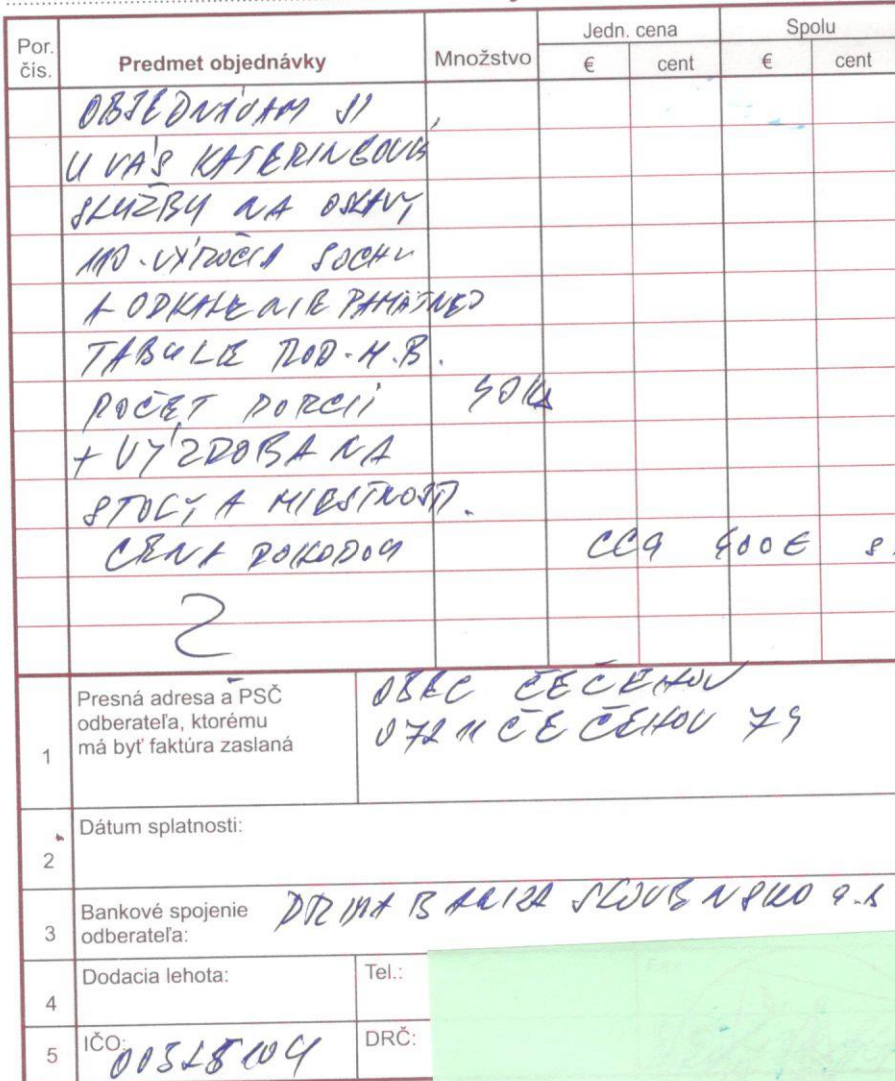 Por. čís. Predmet objednávky Množstvo Jedn. cena Spolu
€ cent € cent
OBJEDNÁVAM SI
U VÁS KATERINGOVÉ
SLUŽBY NA OSLAVY
110. VÝROČIA SOCHY
A ODHALENIE PAMÄTNEJ
TABULE
POČET PORCIÍ
+ VÝZDOBA NA
STOLY A MIESTNOSTI.
CENA DOHODOU CCA 400 €
1 Presná adresa a PSČ odberateľa, ktorému má byť faktúra zaslaná
OBEC ČEČEHOV
072 11 ČEČEHOV 79
2 Dátum splatnosti:
3 Bankové spojenie odberateľa: PRIMA BANKA SLOVENSKO a.s
4 Dodacia lehota: Tel.:
5 IČO: DRČ: